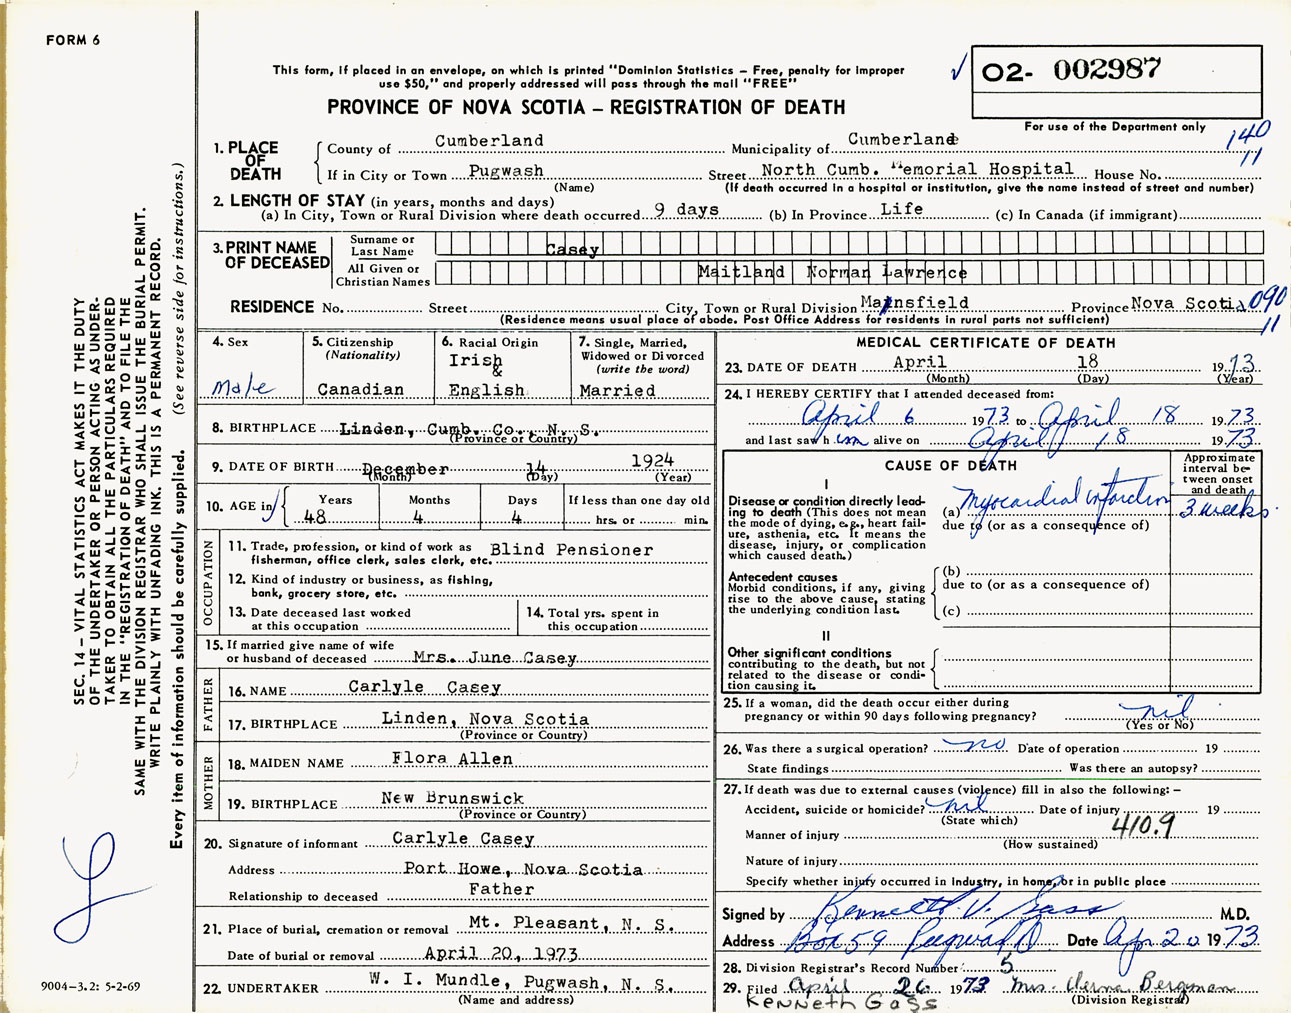 FORM 6
This form, if placed in an envelope, on which is printed "Dominion Statistics – Free, penalty for improper
use $50," and properly addressed will pass through the mail "FREE"
PROVINCE OF NOVA SCOTIA – REGISTRATION OF DEATH
✓ 02- 002987
For use of the Department only
140
11
1. PLACE OF DEATH
County of Cumberland Municipality of Cumberland
If in City or Town Pugwash Street North Cumb. Memorial Hospital House No.
(Name) (If death occurred in a hospital or institution, give the name instead of street and number)
2. LENGTH OF STAY (in years, months and days)
(a) In City, Town or Rural Division where death occurred 9 days (b) In Province Life (c) In Canada (if immigrant)
3. PRINT NAME OF DECEASED
Surname or Last Name Casey
All Given or Christian Names Maitland Norman Lawrence
RESIDENCE No. Street City, Town or Rural Division Mansfield Province Nova Scotia 090
(Residence means usual place of abode. Post Office Address for residents in rural parts not sufficient) 11
4. Sex
Male
5. Citizenship
(Nationality)
Canadian
6. Racial Origin
Irish
&
English
7. Single, Married,
Widowed or Divorced
(write the word)
Married
8. BIRTHPLACE Linden, Cumb. Co., N. S.
(Province or Country)
9. DATE OF BIRTH December 14 1924
(Month) (Day) (Year)
10. AGE in Years Months Days If less than one day old
48 4 4 hrs. or min.
OCCUPATION
11. Trade, profession, or kind of work as Blind Pensioner
fisherman, office clerk, sales clerk, etc.
12. Kind of industry or business, as fishing,
bank, grocery store, etc.
13. Date deceased last worked
at this occupation
14. Total yrs. spent in
this occupation
15. If married give name of wife
or husband of deceased Mrs. June Casey
FATHER
16. NAME Carlyle Casey
17. BIRTHPLACE Linden, Nova Scotia
(Province or Country)
MOTHER
18. MAIDEN NAME Flora Allen
19. BIRTHPLACE New Brunswick
(Province or Country)
20. Signature of informant Carlyle Casey
Address Port Howe, Nova Scotia
Relationship to deceased Father
21. Place of burial, cremation or removal Mt. Pleasant, N. S.
Date of burial or removal April 20, 1973
22. UNDERTAKER W. I. Mundle, Pugwash, N. S.
(Name and address)
MEDICAL CERTIFICATE OF DEATH
23. DATE OF DEATH April 18 1973
(Month) (Day) (Year)
24. I HEREBY CERTIFY that I attended deceased from:
April 6 1973 to April 18 1973
and last saw him alive on April 18 1973
CAUSE OF DEATH
Approximate
interval be-
tween onset
and death
I
Disease or condition directly lead-
ing to death (This does not mean
the mode of dying, e.g., heart fail-
ure, asthenia, etc. It means the
disease, injury, or complication
which caused death.)
(a) Myocardial infarction 3 weeks
due to (or as a consequence of)
Antecedent causes
Morbid conditions, if any, giving
rise to the above cause, stating
the underlying condition last.
(b)
due to (or as a consequence of)
(c)
II
Other significant conditions
contributing to the death, but not
related to the disease or condi-
tion causing it.
25. If a woman, did the death occur either during
pregnancy or within 90 days following pregnancy? nil
(Yes or No)
26. Was there a surgical operation? no Date of operation 19
State findings Was there an autopsy?
27. If death was due to external causes (violence) fill in also the following: –
Accident, suicide or homicide? nil Date of injury 19
(State which)
410.9
Manner of injury
(How sustained)
Nature of injury
Specify whether injury occurred in industry, in home, or in public place
Signed by Kenneth V. Gass M.D.
Address Box 59 Pugwash Date Apr 20 1973
28. Division Registrar's Record Number 5
29. Filed April 26 1973 Mrs. Verna Bergman
(Division Registrar)
KENNETH GASS
SEC. 14 – VITAL STATISTICS ACT MAKES IT THE DUTY
OF THE UNDERTAKER OR PERSON ACTING AS UNDER-
TAKER TO OBTAIN ALL THE PARTICULARS REQUIRED
IN THE "REGISTRATION OF DEATH" AND TO FILE THE
SAME WITH THE DIVISION REGISTRAR WHO SHALL ISSUE THE BURIAL PERMIT.
WRITE PLAINLY WITH UNFADING INK. THIS IS A PERMANENT RECORD.
Every item of information should be carefully supplied. (See reverse side for instructions.)
9004–3.2: 5-2-69